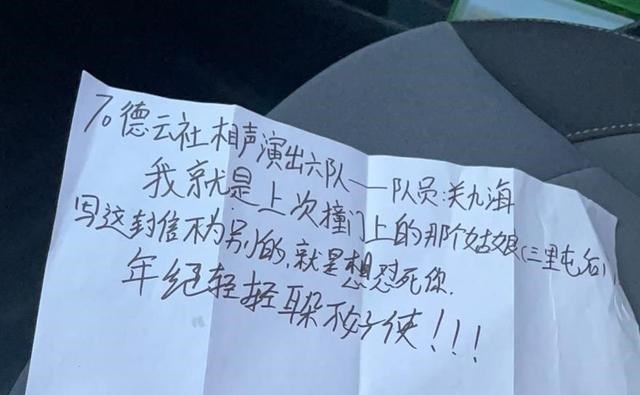 To 德云社相声演出六队——队员:关九海
我就是上次撞门上的那个姑娘(三里屯后)
写这封信不为别的,就是想怼死你.
年纪轻轻耳朵不好使!!!